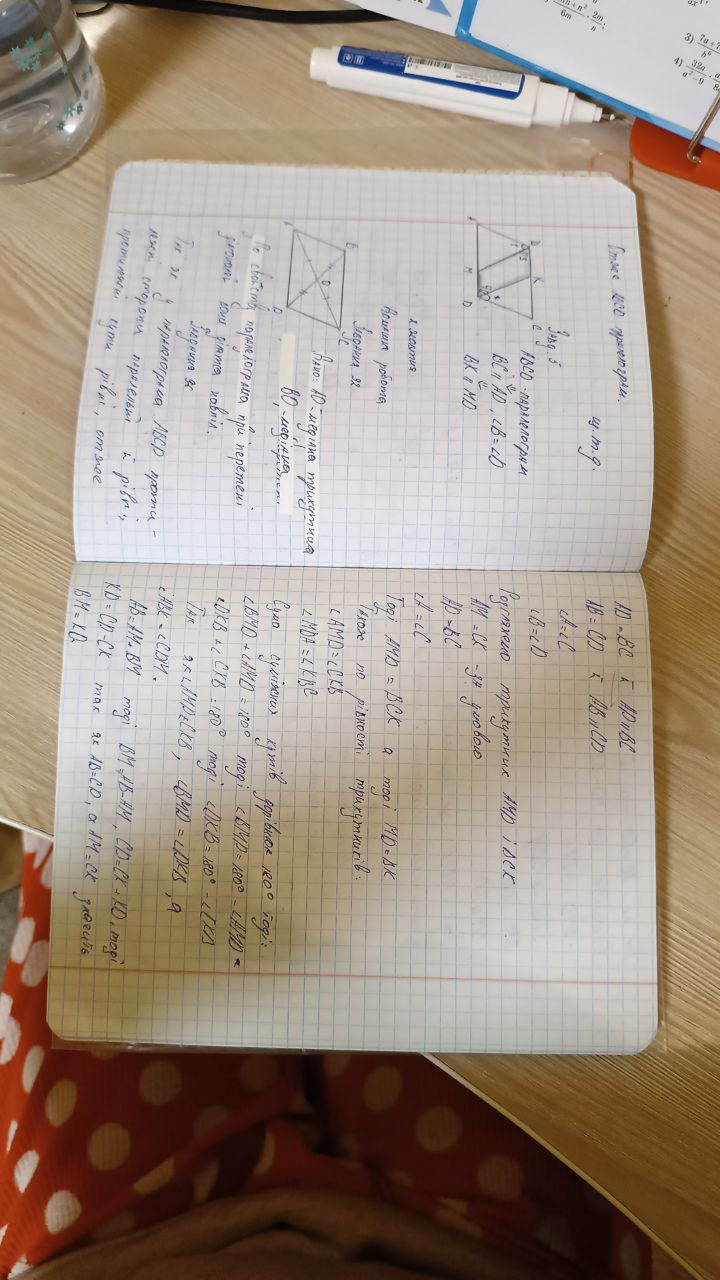 Отже ABCD паралелограм.
ш.т.д.
Завд. 5
ABCD-паралелограм
BC || AD, ∠B=∠D
BK || MD
A
B
K
C
M
D
2 жовтня
Домашня робота
BD-медіана
По свойству паралелограма при перетені
діагоналі вони діляться навпіл.
Так як у паралелограма ABCD проти-
лежні сторони паралельні й рівні,
протилежні кути рівні, отже
AD = BC й AD || BC
AB = CD й AB || CD
∠A=∠C
∠B=∠D
Розглянемо трикутник AMD і BCK
AM = CK - за умовою
AD = BC
∠A = ∠C
Тоді AMD = BCK а тоді MD = BK
Також по рівності трикутників:
∠AMD = ∠CKB
∠MDA = ∠KBC
Сума суміжних кутів дорівнює 180° тоді:
∠BMD + ∠AMD = 180° тоді ∠BMD = 180° - ∠AMD
∠DKB + ∠CKB = 180° тоді ∠DKB = 180° - ∠CKB
Так як ∠AMD = ∠CKB, ∠BMD = ∠DKB, а
AB = AM+BM тоді BM = AB-AM, CD = CK + KD, тоді
KD = CD - CK так як AB = CD, а AM = CK значить
3) 7a+7
b⁶
4) 32a
a²-9
6m
2m
n